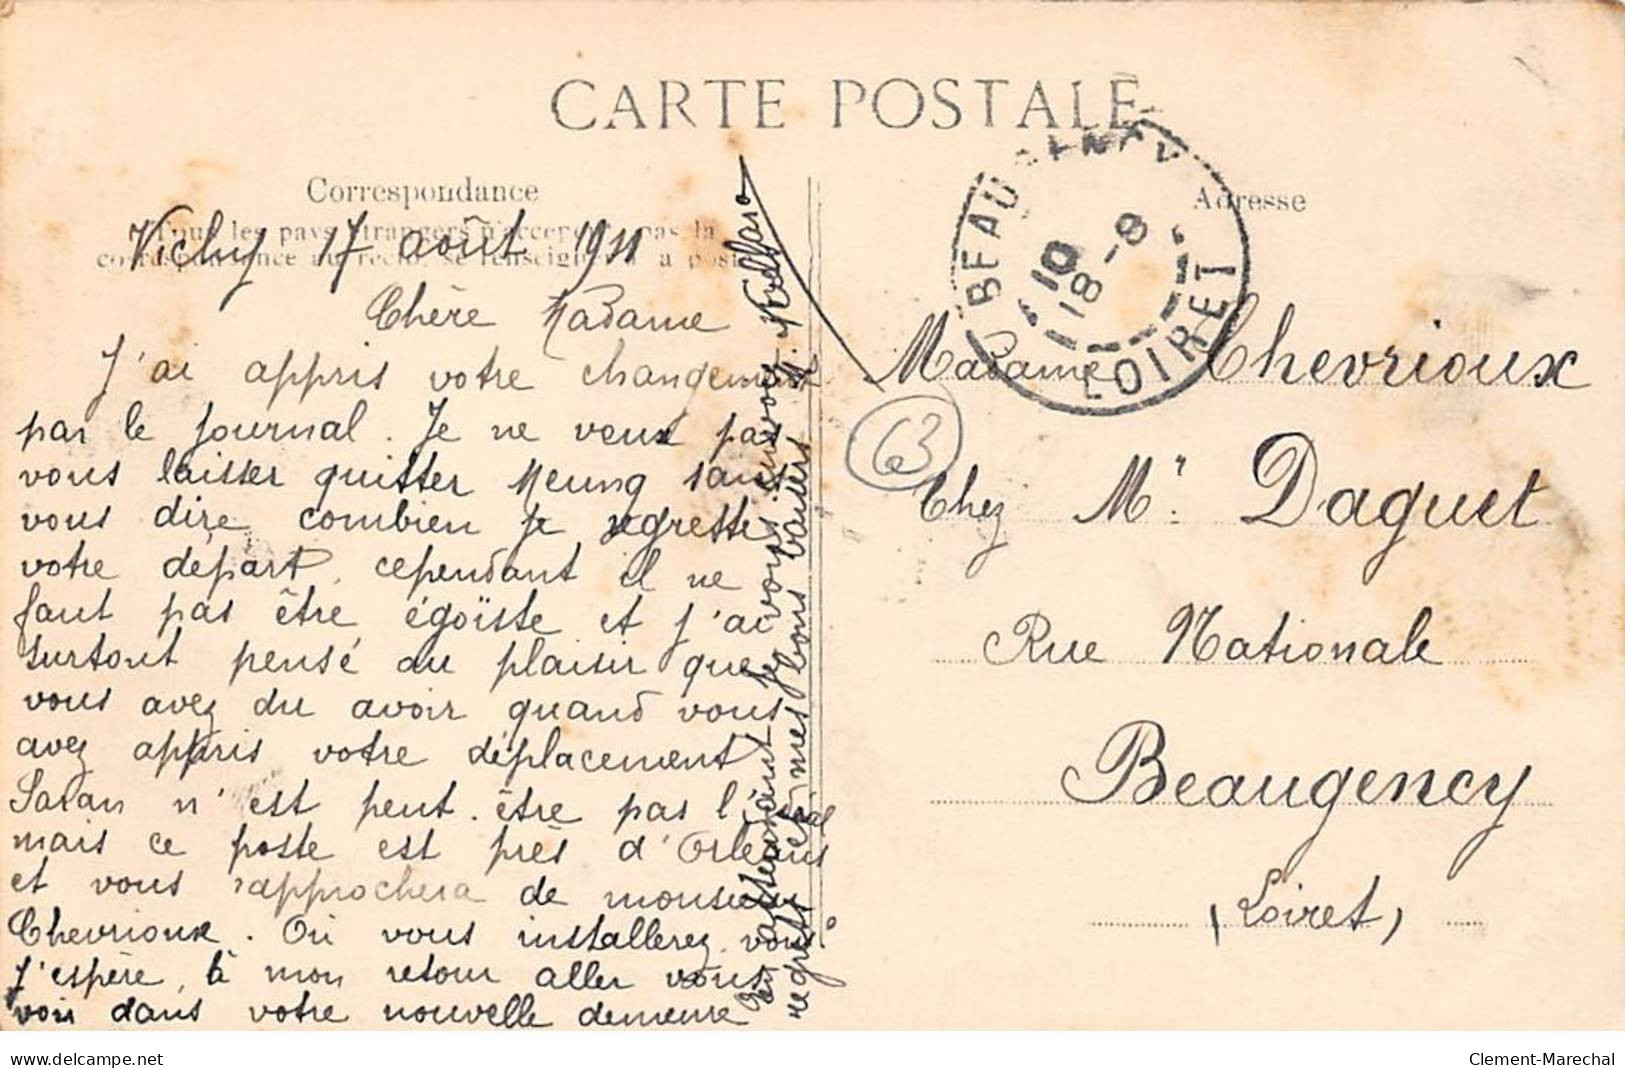 CARTE POSTALE
Correspondance
Tous les pays étrangers n'acceptent pas la
correspondance au recto, se renseigner à la poste
Adresse
Vichy 17 août 1911
Chère Madame
J'ai appris votre changement
par le journal. Je ne veux pas
vous laisser quitter Meung sans
vous dire combien je regrette
votre départ, cependant il ne
faut pas être égoïste et j'ai
surtout pensé au plaisir que
vous avez du avoir quand vous
avez appris votre déplacement
Saran n'est peut-être pas l'idéal
mais ce poste est près d'Orléans
et vous rapprochera de monsieur
Chevrioux. Où vous installerez vous?
J'espère, à mon retour aller vous
voir dans votre nouvelle demeure
En attendant je vous envoie
regrets et mes bons baisers
BEAUGENCY
10
18-8
LOIRET
Madame Chevrioux
Chez Mr. Daguet
Rue Nationale
Beaugency
(Loiret)
63
www.delcampe.net
Clement-Marechal